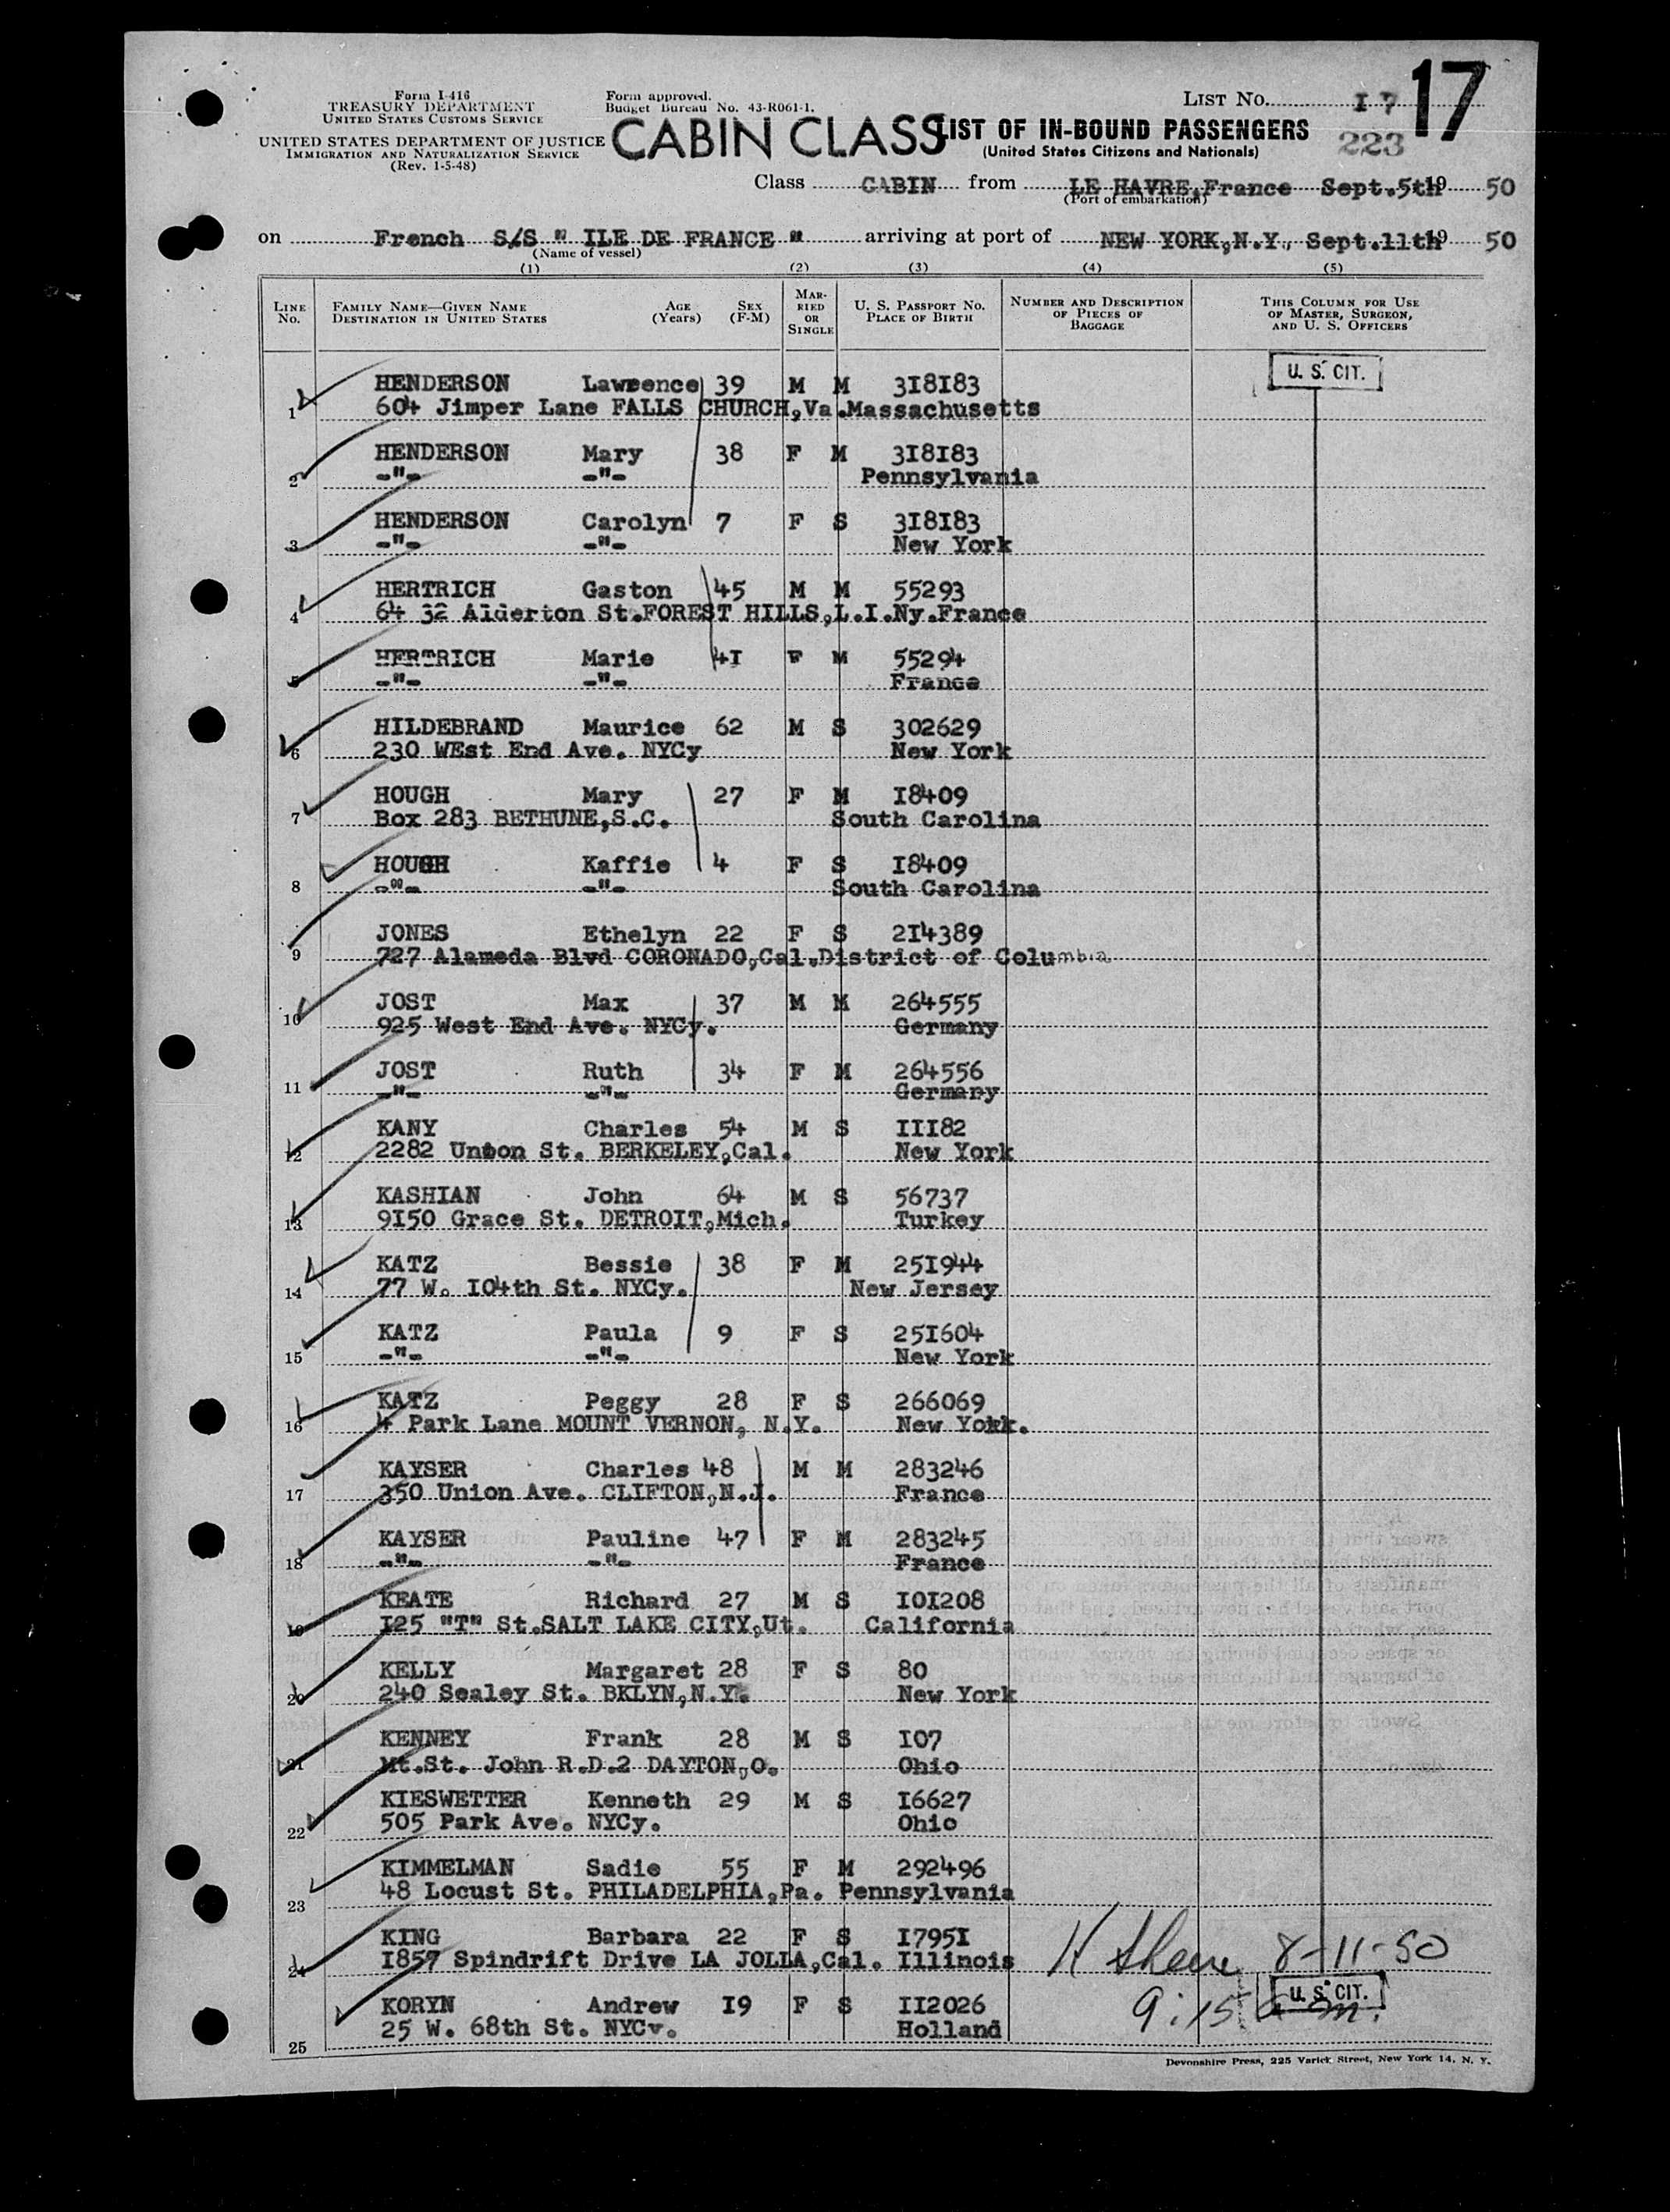 Form I-416
TREASURY DEPARTMENT
UNITED STATES CUSTOMS SERVICE
UNITED STATES DEPARTMENT OF JUSTICE
IMMIGRATION AND NATURALIZATION SERVICE
(Rev. 1-5-48)
Form approved.
Budget Bureau No. 43-R061-1.
CABIN CLASS
LIST OF IN-BOUND PASSENGERS
(United States Citizens and Nationals)
LIST No. I7 17
223
Class CABIN from LE HAVRE,France Sept.5th 19 50
(Port of embarkation)
on French S/S " ILE DE FRANCE " arriving at port of NEW YORK,N.Y, Sept.11th 19 50
(Name of vessel)
(1) (2) (3) (4) (5)
LINE No. FAMILY NAME—GIVEN NAME DESTINATION IN UNITED STATES AGE (Years) SEX (F-M) MARRIED OR SINGLE U. S. PASSPORT No. PLACE OF BIRTH NUMBER AND DESCRIPTION OF PIECES OF BAGGAGE THIS COLUMN FOR USE OF MASTER, SURGEON, AND U. S. OFFICERS
U. S. CIT.
HENDERSON Lawrence 39 M M 3I8I83
1 604 Jimper Lane FALLS CHURCH,Va.Massachusetts
HENDERSON Mary 38 F M 3I8I83
2 -"- -"- Pennsylvania
HENDERSON Carolyn 7 F S 3I8I83
3 -"- -"- New York
HERTRICH Gaston 45 M M 55293
4 64 32 Alderton St.FOREST HILLS,L.I.Ny.France
HERTRICH Marie 4I F M 55294
5 -"- -"- France
HILDEBRAND Maurice 62 M S 302629
6 230 WEst End Ave. NYCy New York
HOUGH Mary 27 F M I8409
7 Box 283 BETHUNE,S.C. South Carolina
HOUGH Kaffie 4 F S I8409
8 -"- -"- South Carolina
JONES Ethelyn 22 F S 2I4389
9 727 Alameda Blvd CORONADO,Cal.District of Columbia
JOST Max 37 M M 264555
10 925 West End Ave. NYCy. Germany
JOST Ruth 34 F M 264556
11 -"- -"- Germany
KANY Charles 54 M S III82
12 2282 Union St. BERKELEY,Cal. New York
KASHIAN John 64 M S 56737
13 9I50 Grace St. DETROIT,Mich. Turkey
KATZ Bessie 38 F M 25I944
14 77 W. I04th St. NYCy. New Jersey
KATZ Paula 9 F S 25I604
15 -"- -"- New York
KATZ Peggy 28 F S 266069
16 4 Park Lane MOUNT VERNON, N.Y. New Yokk.
KAYSER Charles 48 M M 283246
17 350 Union Ave. CLIFTON,N.J. France
KAYSER Pauline 47 F M 283245
18 -"- -"- France
KEATE Richard 27 M S I0I208
19 I25 "T" St.SALT LAKE CITY,Ut. California
KELLY Margaret 28 F S 80
20 240 Sealey St. BKLYN,N.Y. New York
KENNEY Frank 28 M S I07
21 Mt.St. John R.D.2 DAYTON,O. Ohio
KIESWETTER Kenneth 29 M S I6627
22 505 Park Ave. NYCy. Ohio
KIMMELMAN Sadie 55 F M 292496
23 48 Locust St. PHILADELPHIA,Pa. Pennsylvania
KING Barbara 22 F S I795I
24 I857 Spindrift Drive LA JOLLA,Cal. Illinois
8-11-50
KORYN Andrew I9 F S II2026
25 25 W. 68th St. NYCy. Holland
9:15 a m.
U. S. CIT.
Devonshire Press, 225 Varick Street, New York 14, N. Y.